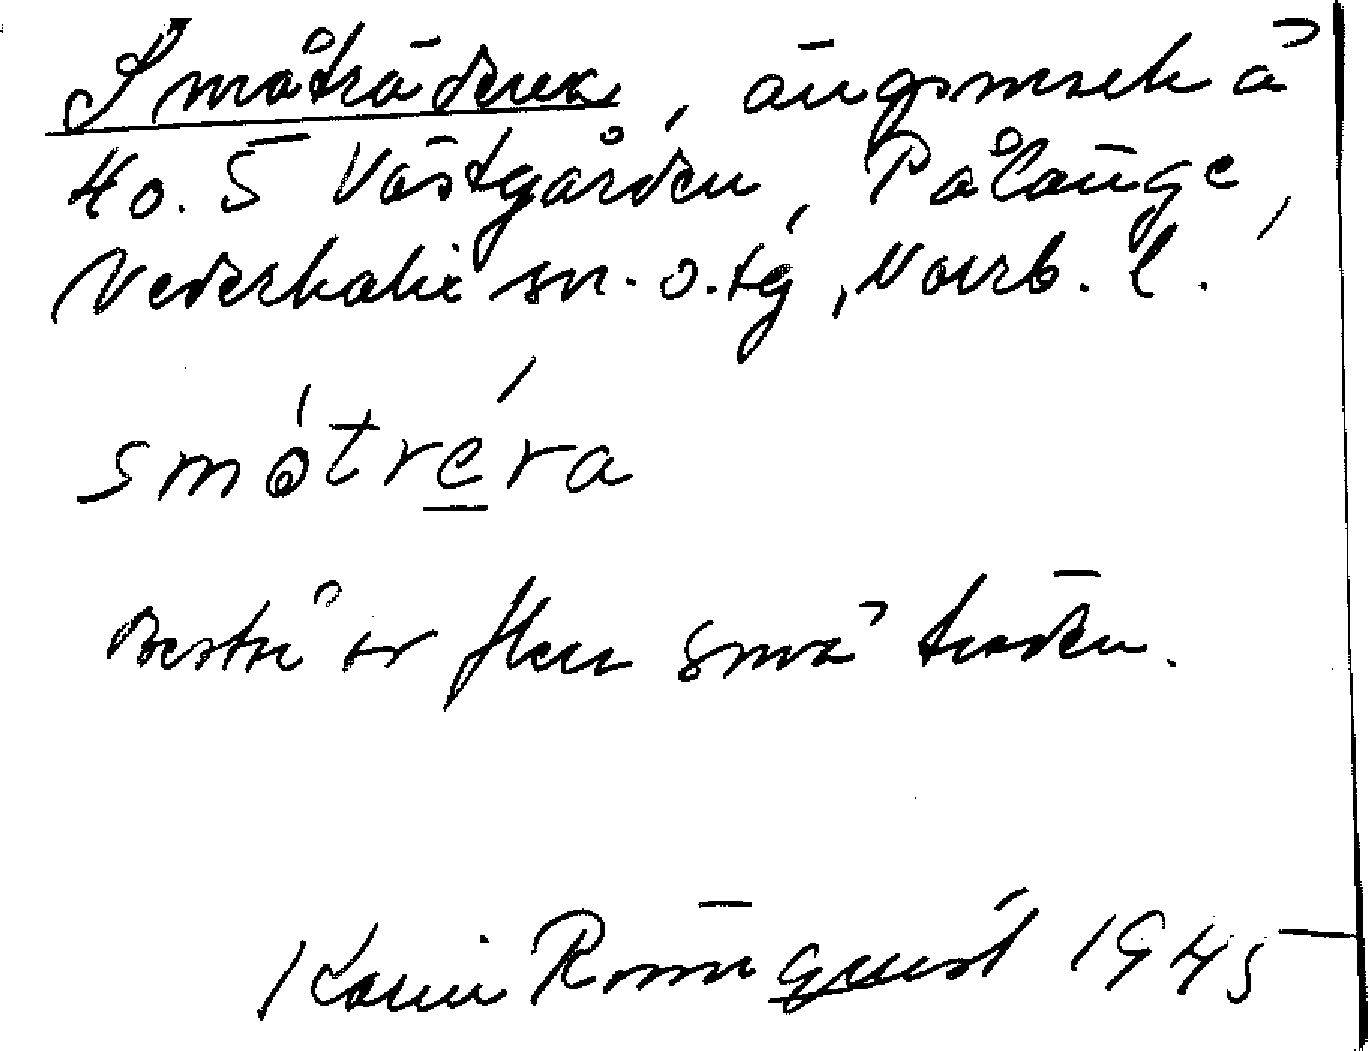 Småträderna, ängsmark å
Ho. 5 Västgården, Pålänge,
Nederkalix sn. o. tg, Norrb. l.
småtrera
Består av flera små träden.
Karin Rönnquist 1945